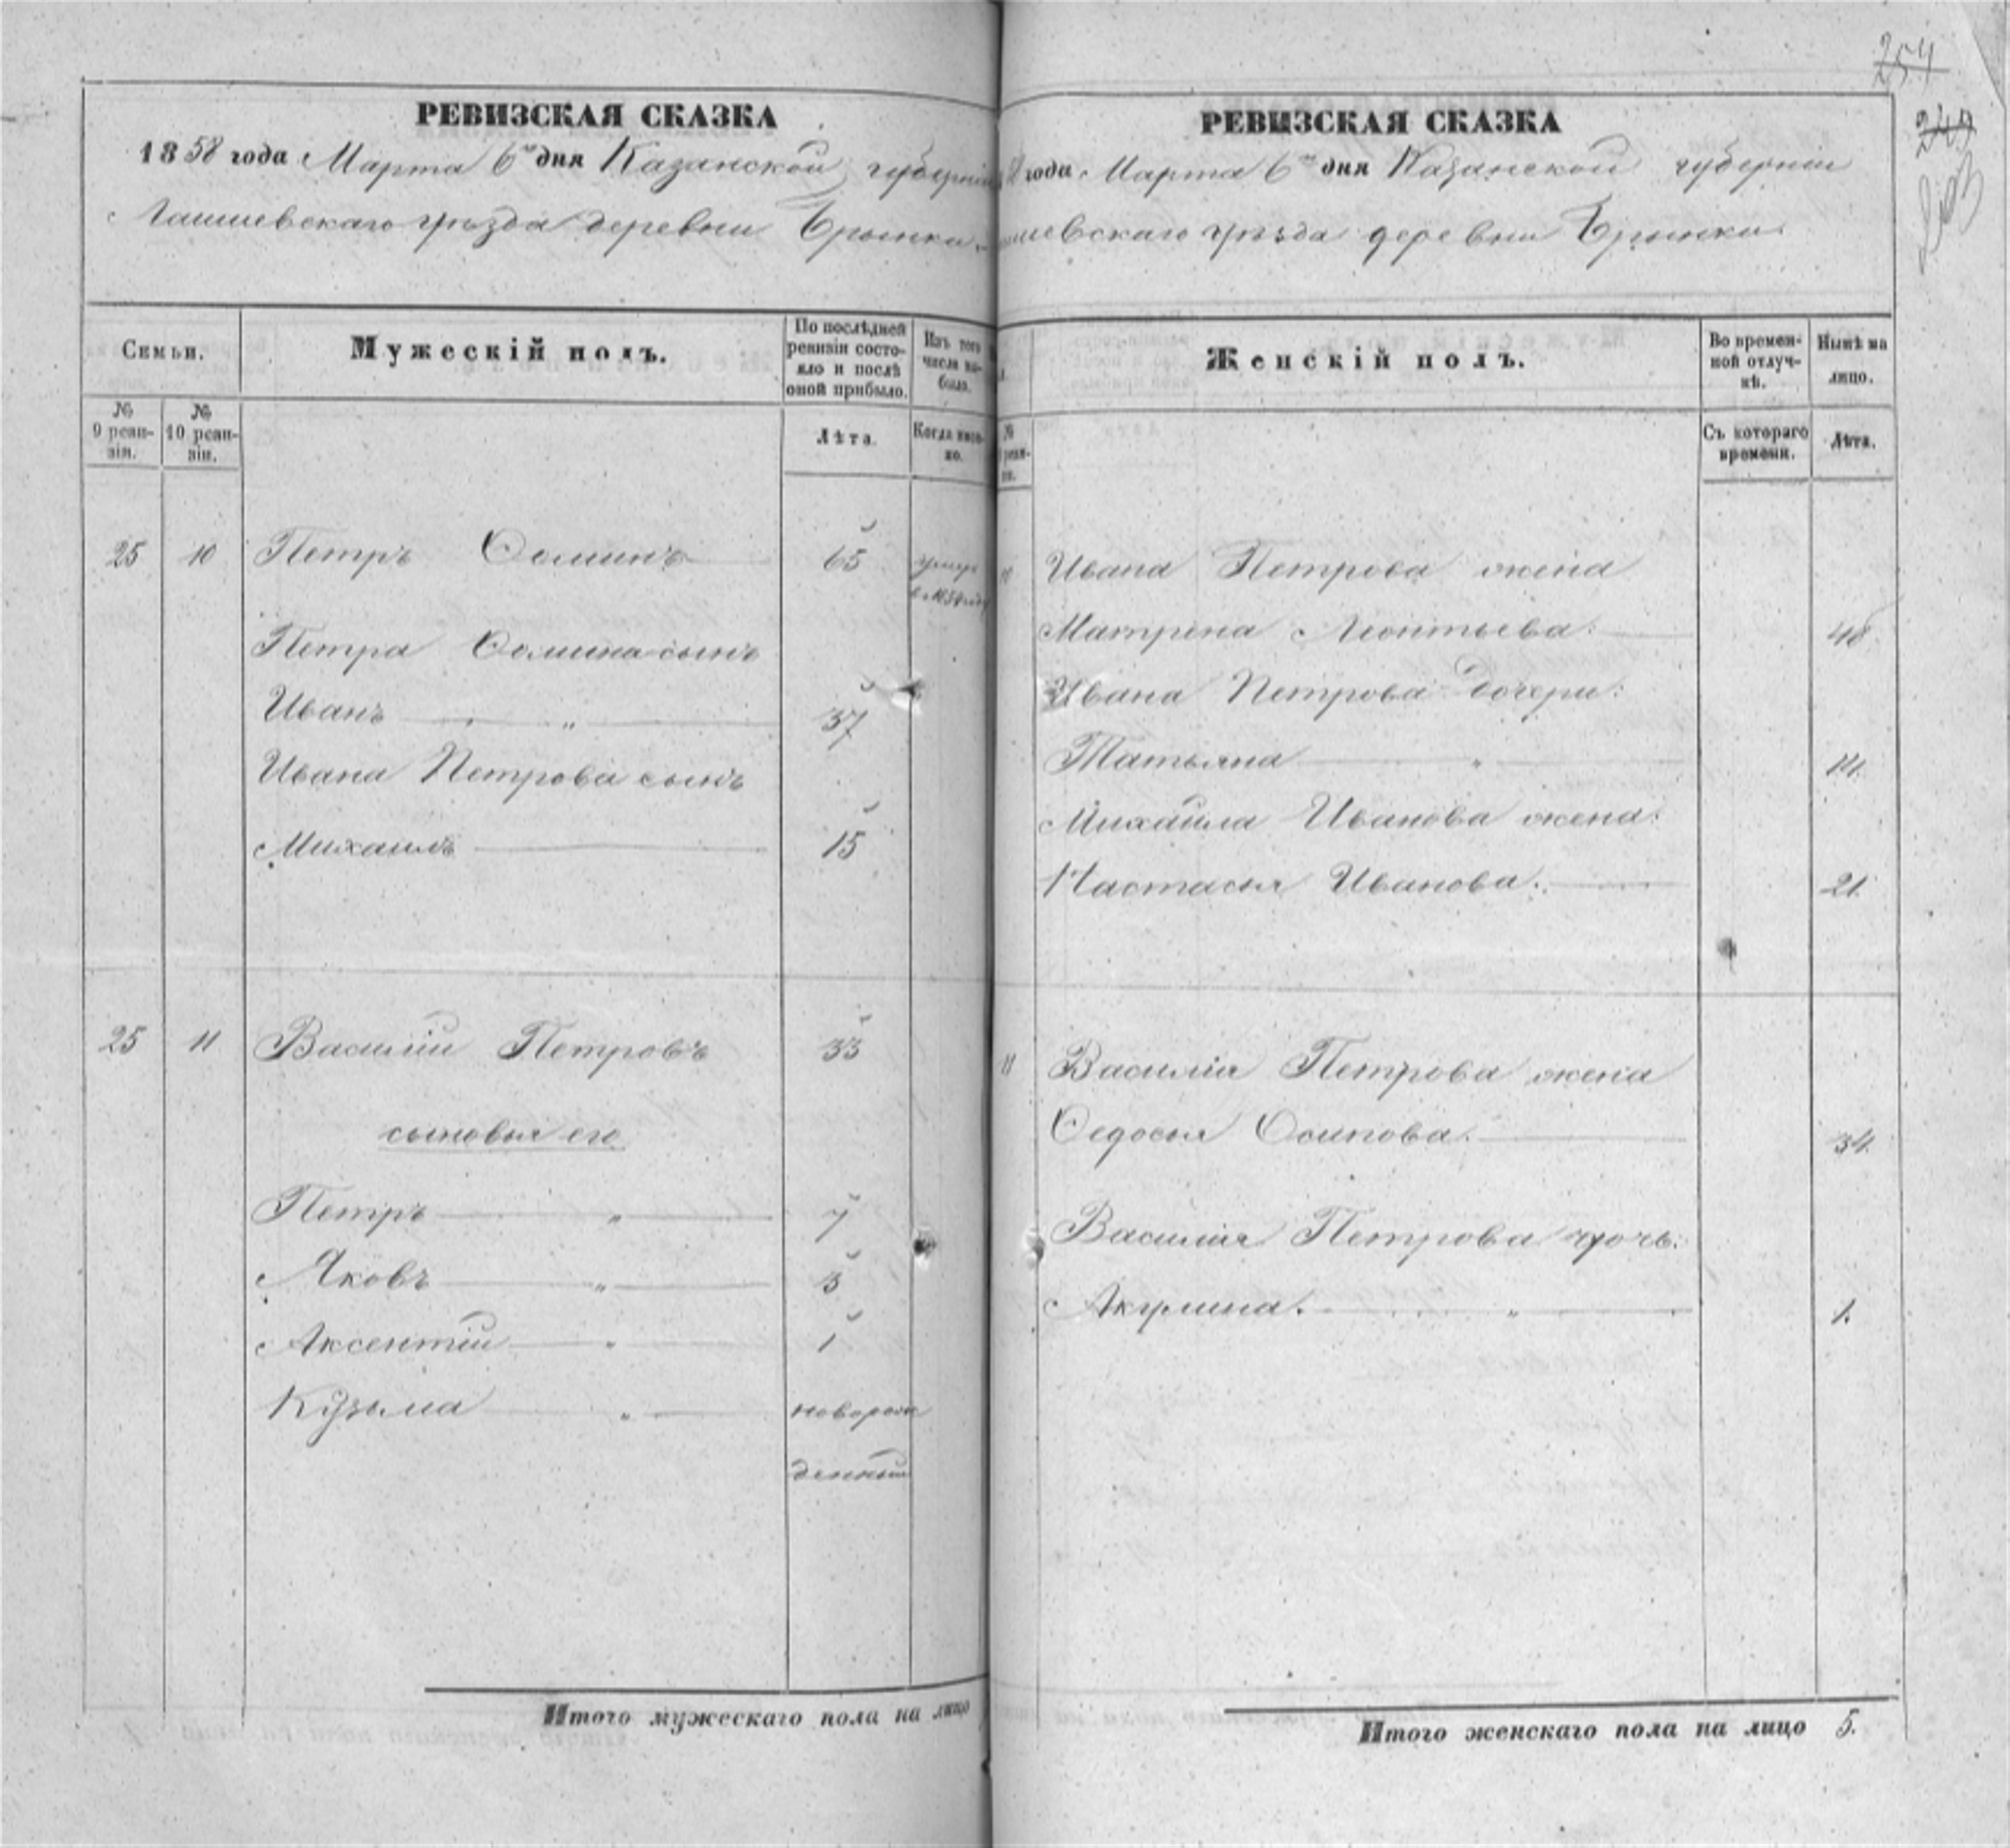 254
249
РЕВИЗСКАЯ СКАЗКА
1858 года Марта 6го дня Казанской губерніи
Лаишевскаго уѣзда деревни Ерыкли
Семьи.
Мужескій полъ.
По послѣдней ревизіи состояло и послѣ оной прибыло.
Изъ того числа выбыло.
№ 9 ревизіи.
№ 10 ревизіи.
Лѣта.
Когда именно.
25 10 Петръ Ѳоминъ 65 умеръ
Петра Ѳомина сынъ
Иванъ „ 37
Ивана Петрова сынъ
Михаилъ 15
25 11 Василій Петровъ 33
сыновья его
Петръ „ 7
Яковъ „ 3
Аксентій „ 1
Кузьма „ новорож
денный
Итого мужескаго пола на лицо
РЕВИЗСКАЯ СКАЗКА
8 года Марта 6го дня Казанской губерніи
ишевскаго уѣзда деревни
Женскій полъ.
Во временной отлучкѣ.
Нынѣ на лицо.
№ реви-
зіи.
Съ котораго времени.
Лѣта.
10 Ивана Петрова жена
Матрена Леонтьева. 48
Ивана Петрова дочери:
Татьяна „ 14.
Михаила Иванова жена:
Настасья Иванова. 21.
11 Василія Петрова жена
Ѳедосья Осипова. 34.
Василія Петрова дочь:
Акулина. „ 1.
Итого женскаго пола на лицо 5.